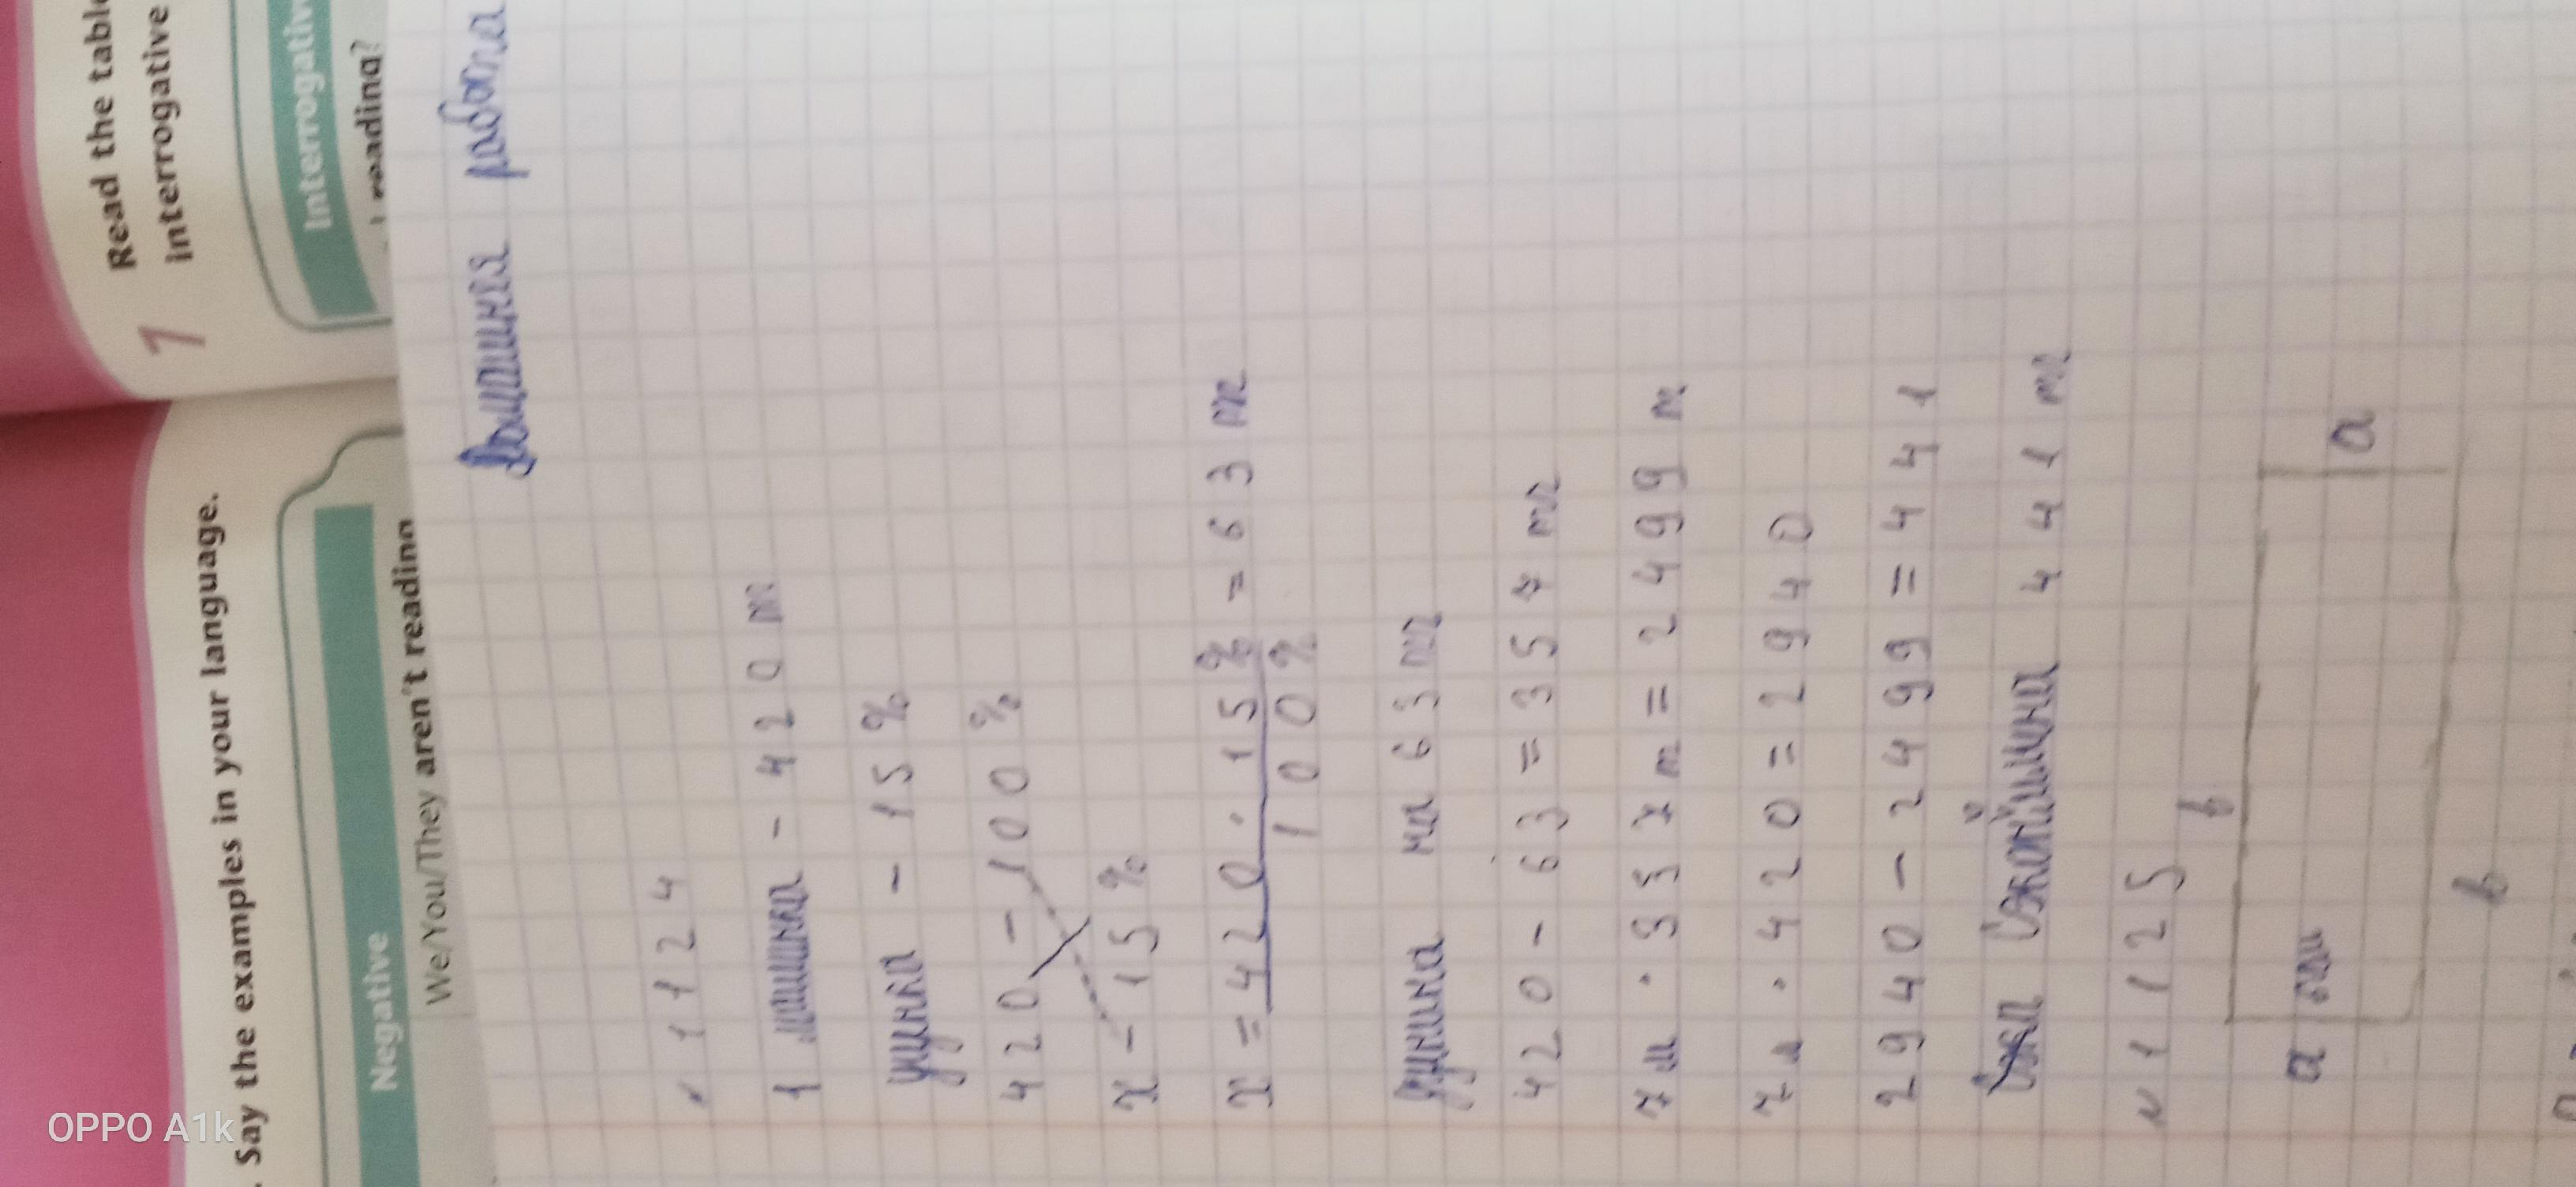 Read the tabl
interrogative
1
Interrogativ
reading?
. Say the examples in your language.
Negative
We/You/They aren't reading
Домашняя работа
№ 1124
1 машина - 420 т
уценка - 15%
420 - 100%
x - 15%
x = 420 · 15% / 100% = 63 т
на 63 тг
420 - 63 = 357 тг
7 м · 357 т = 2499 т
7 м · 420 = 2940
2940 - 2499 = 441
441 тг
№ 1125
b
a
a
b
OPPO A1k